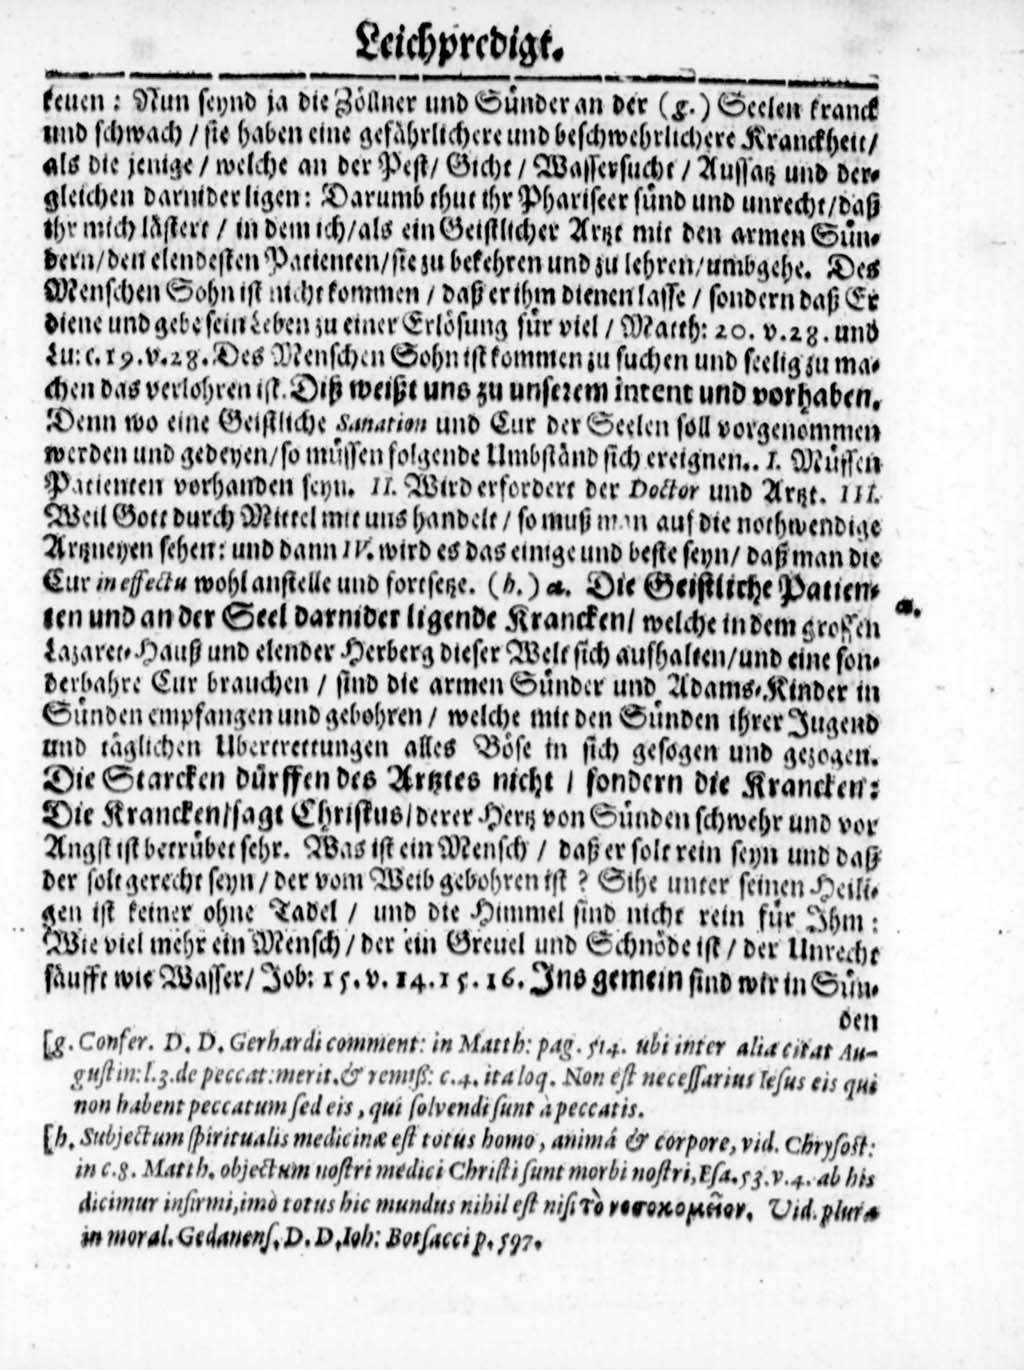 Leichpredigt.
keuen: Nun seynd ja die Zöllner und Sünder an der (g.) Seelen kranck
und schwach / sie haben eine gefährlichere und beschwehrlichere Kranckheit /
als die jenige / welche an der Pest / Gicht / Wassersucht / Aussatz und der-
gleichen darnider ligen: Darumb thut ihr Phariseer sünd und unrecht / daß
ihr mich lästert / in dem ich / als ein Geistlicher Artzt mit den armen Sün-
dern / den elendesten Patienten / sie zu bekehren und zu lehren / umbgehe. Des
Menschen Sohn ist nicht kommen / daß er ihm dienen lasse / sondern daß Er
diene und gebe sein Leben zu einer Erlösung für viel / Matth: 20. v. 28. und
Lu: c. 19. v. 28. Des Menschen Sohn ist kommen zu suchen und seelig zu ma-
chen das verlohren ist. Diß weißt uns zu unserem intent und vorhaben.
Denn wo eine Geistliche Sanation und Cur der Seelen soll vorgenommen
werden und gedeyen / so müssen folgende Umbständ sich ereignen.. I. Müssen
Patienten vorhanden seyn. II. Wird erfordert der Doctor und Artzt. III.
Weil Gott durch Mittel mit uns handelt / so muß man auf die nothwendige
Artzneyen sehen: und dann IV. wird es das einige und beste seyn / daß man die
Cur in effectu wohl anstelle und fortsetze. (h.) a. Die Geistliche Patien-
a.
ten und an der Seel darnider ligende Krancken / welche in dem grossen
Lazaret-Hauß und elender Herberg dieser Welt sich aufhalten / und eine son-
derbahre Cur brauchen / sind die armen Sünder und Adams-Kinder in
Sünden empfangen und gebohren / welche mit den Sünden ihrer Jugend
und täglichen Ubertrettungen alles Böse in sich gesogen und gezogen.
Die Starcken dürffen des Artztes nicht / sondern die Krancken:
Die Krancken / sagt Christus / derer Hertz von Sünden schwehr und vor
Angst ist betrübet sehr. Was ist ein Mensch / daß er solt rein seyn und daß
der solt gerecht seyn / der vom Weib gebohren ist? Sihe unter seinen Heili-
gen ist keiner ohne Tadel / und die Himmel sind nicht rein für Ihm:
Wie viel mehr ein Mensch / der ein Greuel und Schnöde ist / der Unrecht
säufft wie Wasser / Job: 15. v. 14. 15. 16. Ins gemein sind wir in Sün-
den
[g. Confer. D. D. Gerhardi comment: in Matth: pag. 514. ubi inter alia citat Au-
gustin: l. 3. de peccat: merit. & remiß: c. 4. ita loq. Non est necessarius Iesus eis qui
non habent peccatum sed eis, qui solvendi sunt à peccatis.
[h. Subjectum spiritualis medicinæ est totus homo, animâ & corpore, vid. Chrysost:
in c. 8. Matth. objectum nostri medici Christi sunt morbi nostri, Esa. 53. v. 4. ab his
dicimur infirmi, imò totus hic mundus nihil est nisi τὸ νοσοκομεῖον. Vid. plura
in moral. Gedanens. D. D. Ioh: Botsacci p. 597.